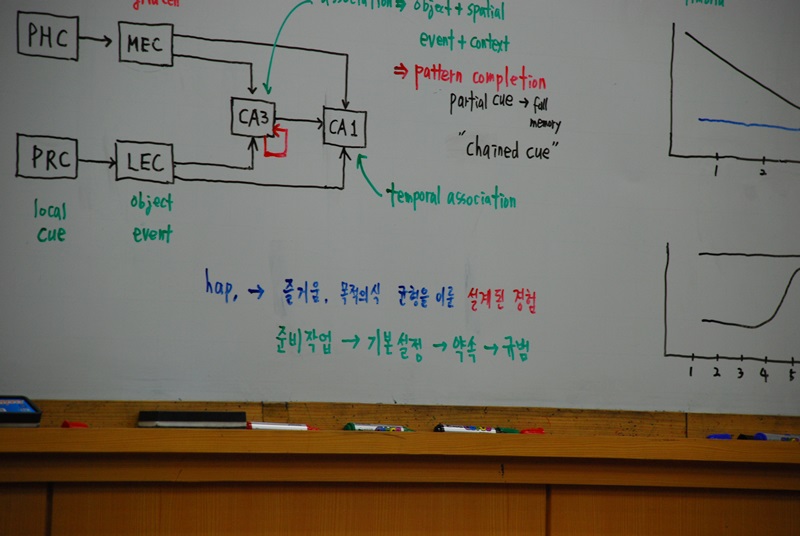 association ⇒ object + spatial
event + context
⇒ pattern completion
partial cue → full
memory
"chained cue"
PHC
MEC
CA3
CA1
PRC
LEC
local
cue
object
event
temporal association
hap, → 즐거움, 목적의식 균형을 이룬 설계된 경험
준비작업 → 기본설정 → 약속 → 규범
1 2
1 2 3 4 5